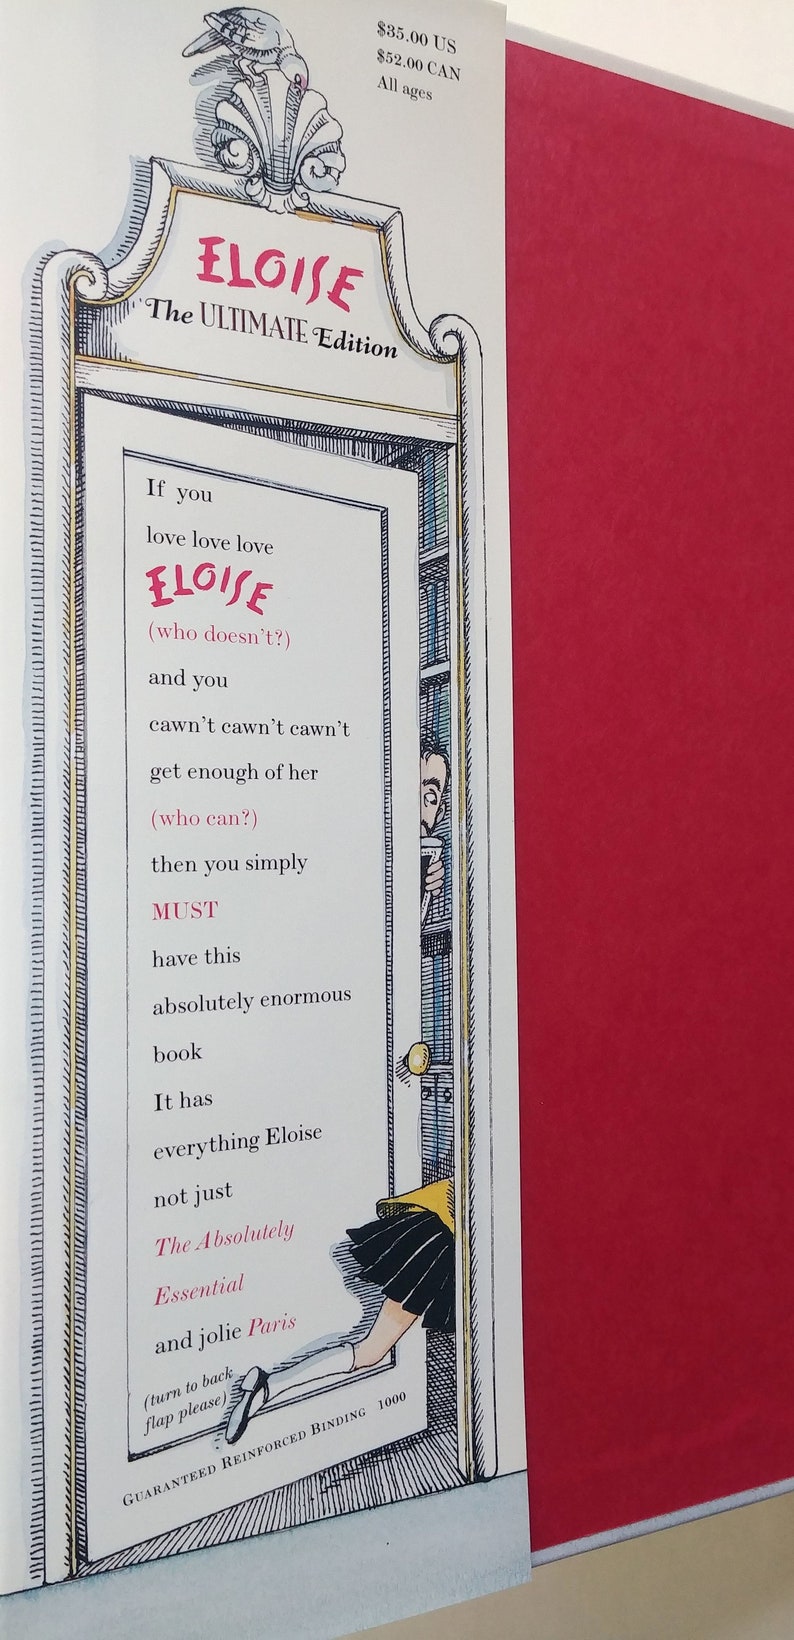 $35.00 US
$52.00 CAN
All ages
ELOISE
The ULTIMATE Edition
If you
love love love
ELOISE
(who doesn't?)
and you
cawn't cawn't cawn't
get enough of her
(who can?)
then you simply
MUST
have this
absolutely enormous
book
It has
everything Eloise
not just
The Absolutely
Essential
and jolie Paris
(turn to back
flap please)
GUARANTEED REINFORCED BINDING 1000